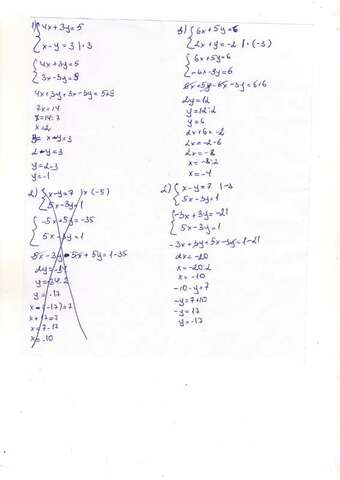 1) { 4x+3y=5
x-y=3 | ·3
{ 4x+3y=5
3x-3y=9
4x+3y+3x-3y=5+9
7x=14
x=14:7
x=2
x-y=3
2-y=3
y=2-3
y=-1
2) { x-y=7 | x(-5)
5x-3y=1
{ -5x+5y=-35
5x-3y=1
5x-3y-5x+5y=1-35
2y=-34
y=-34:2
y=-17
x-(-17)=7
x+17=7
x=7-17
x=-10
3) { 6x+5y=6
2x+y=-2 | ·(-3)
{ 6x+5y=6
-6x-3y=6
6x+5y-6x-3y=6+6
2y=12
y=12:2
y=6
2x+6=-2
2x=-2-6
2x=-8
x=-8:2
x=-4
2) { x-y=7 | -3
5x-3y=1
{ -3x+3y=-21
5x-3y=1
-3x+3y+5x-3y=1-21
2x=-20
x=-20:2
x=-10
-10-y=7
-y=7+10
-y=17
y=-17